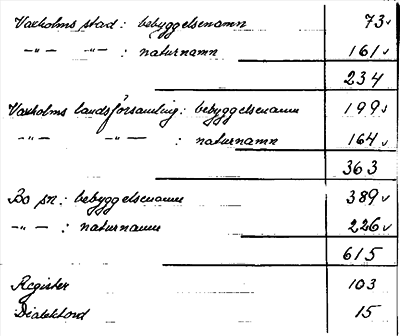 Vaxholms stad: bebyggelsenamn 73
-"- -"- : naturnamn 161
234
Vaxholms landsförsamling: bebyggelsenamn 199
-"- -"- : naturnamn 164
363
Bo sn.: bebyggelsenamn 389
-"- : naturnamn 226
615
Register 103
Dialektord 15